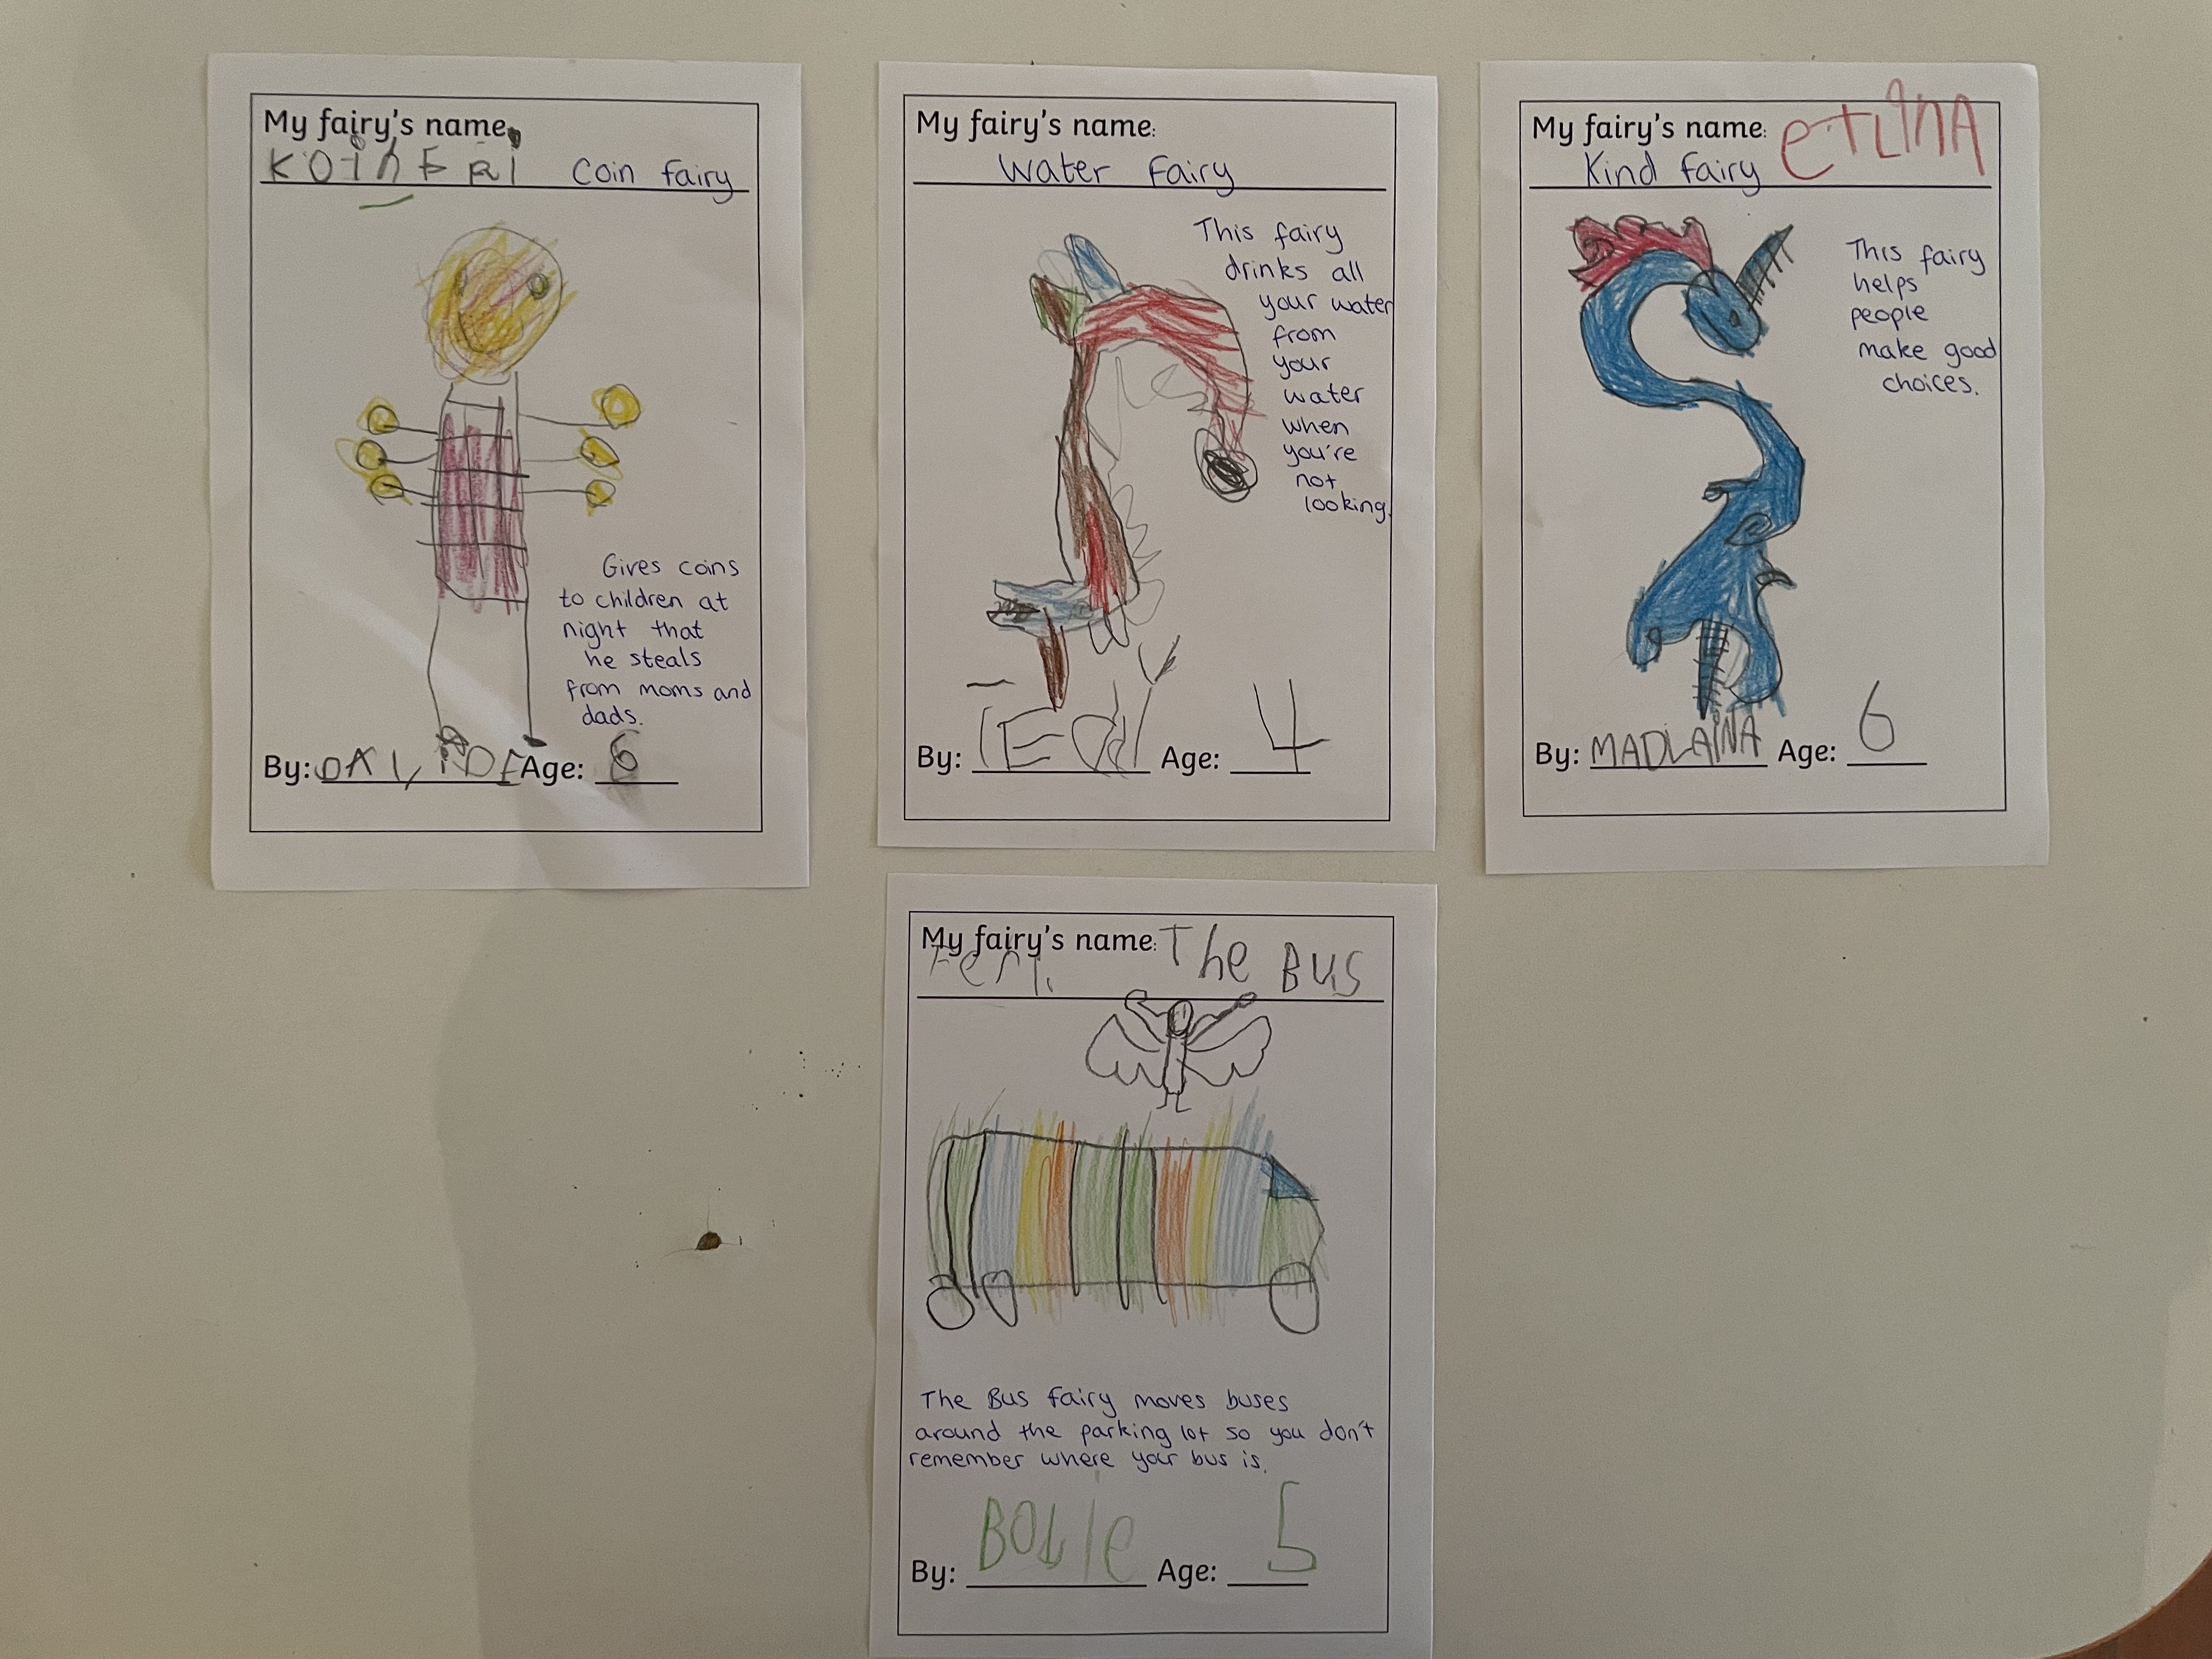 My fairy's name:
KOinFRi Coin fairy
Gives coins
to children at
night that
he steals
from moms and
dads.
By: Age: 6
My fairy's name:
Water Fairy
This fairy
drinks all
your water
from
your
water
when
you're
not
looking.
By: TEOdY Age: 4
My fairy's name: eTLinA
Kind fairy
This fairy
helps
people
make good
choices.
By: MADLAiNA Age: 6
My fairy's name: The BUS
The Bus fairy moves buses
around the parking lot so you don't
remember where your bus is.
By: BOLLIe Age: 5